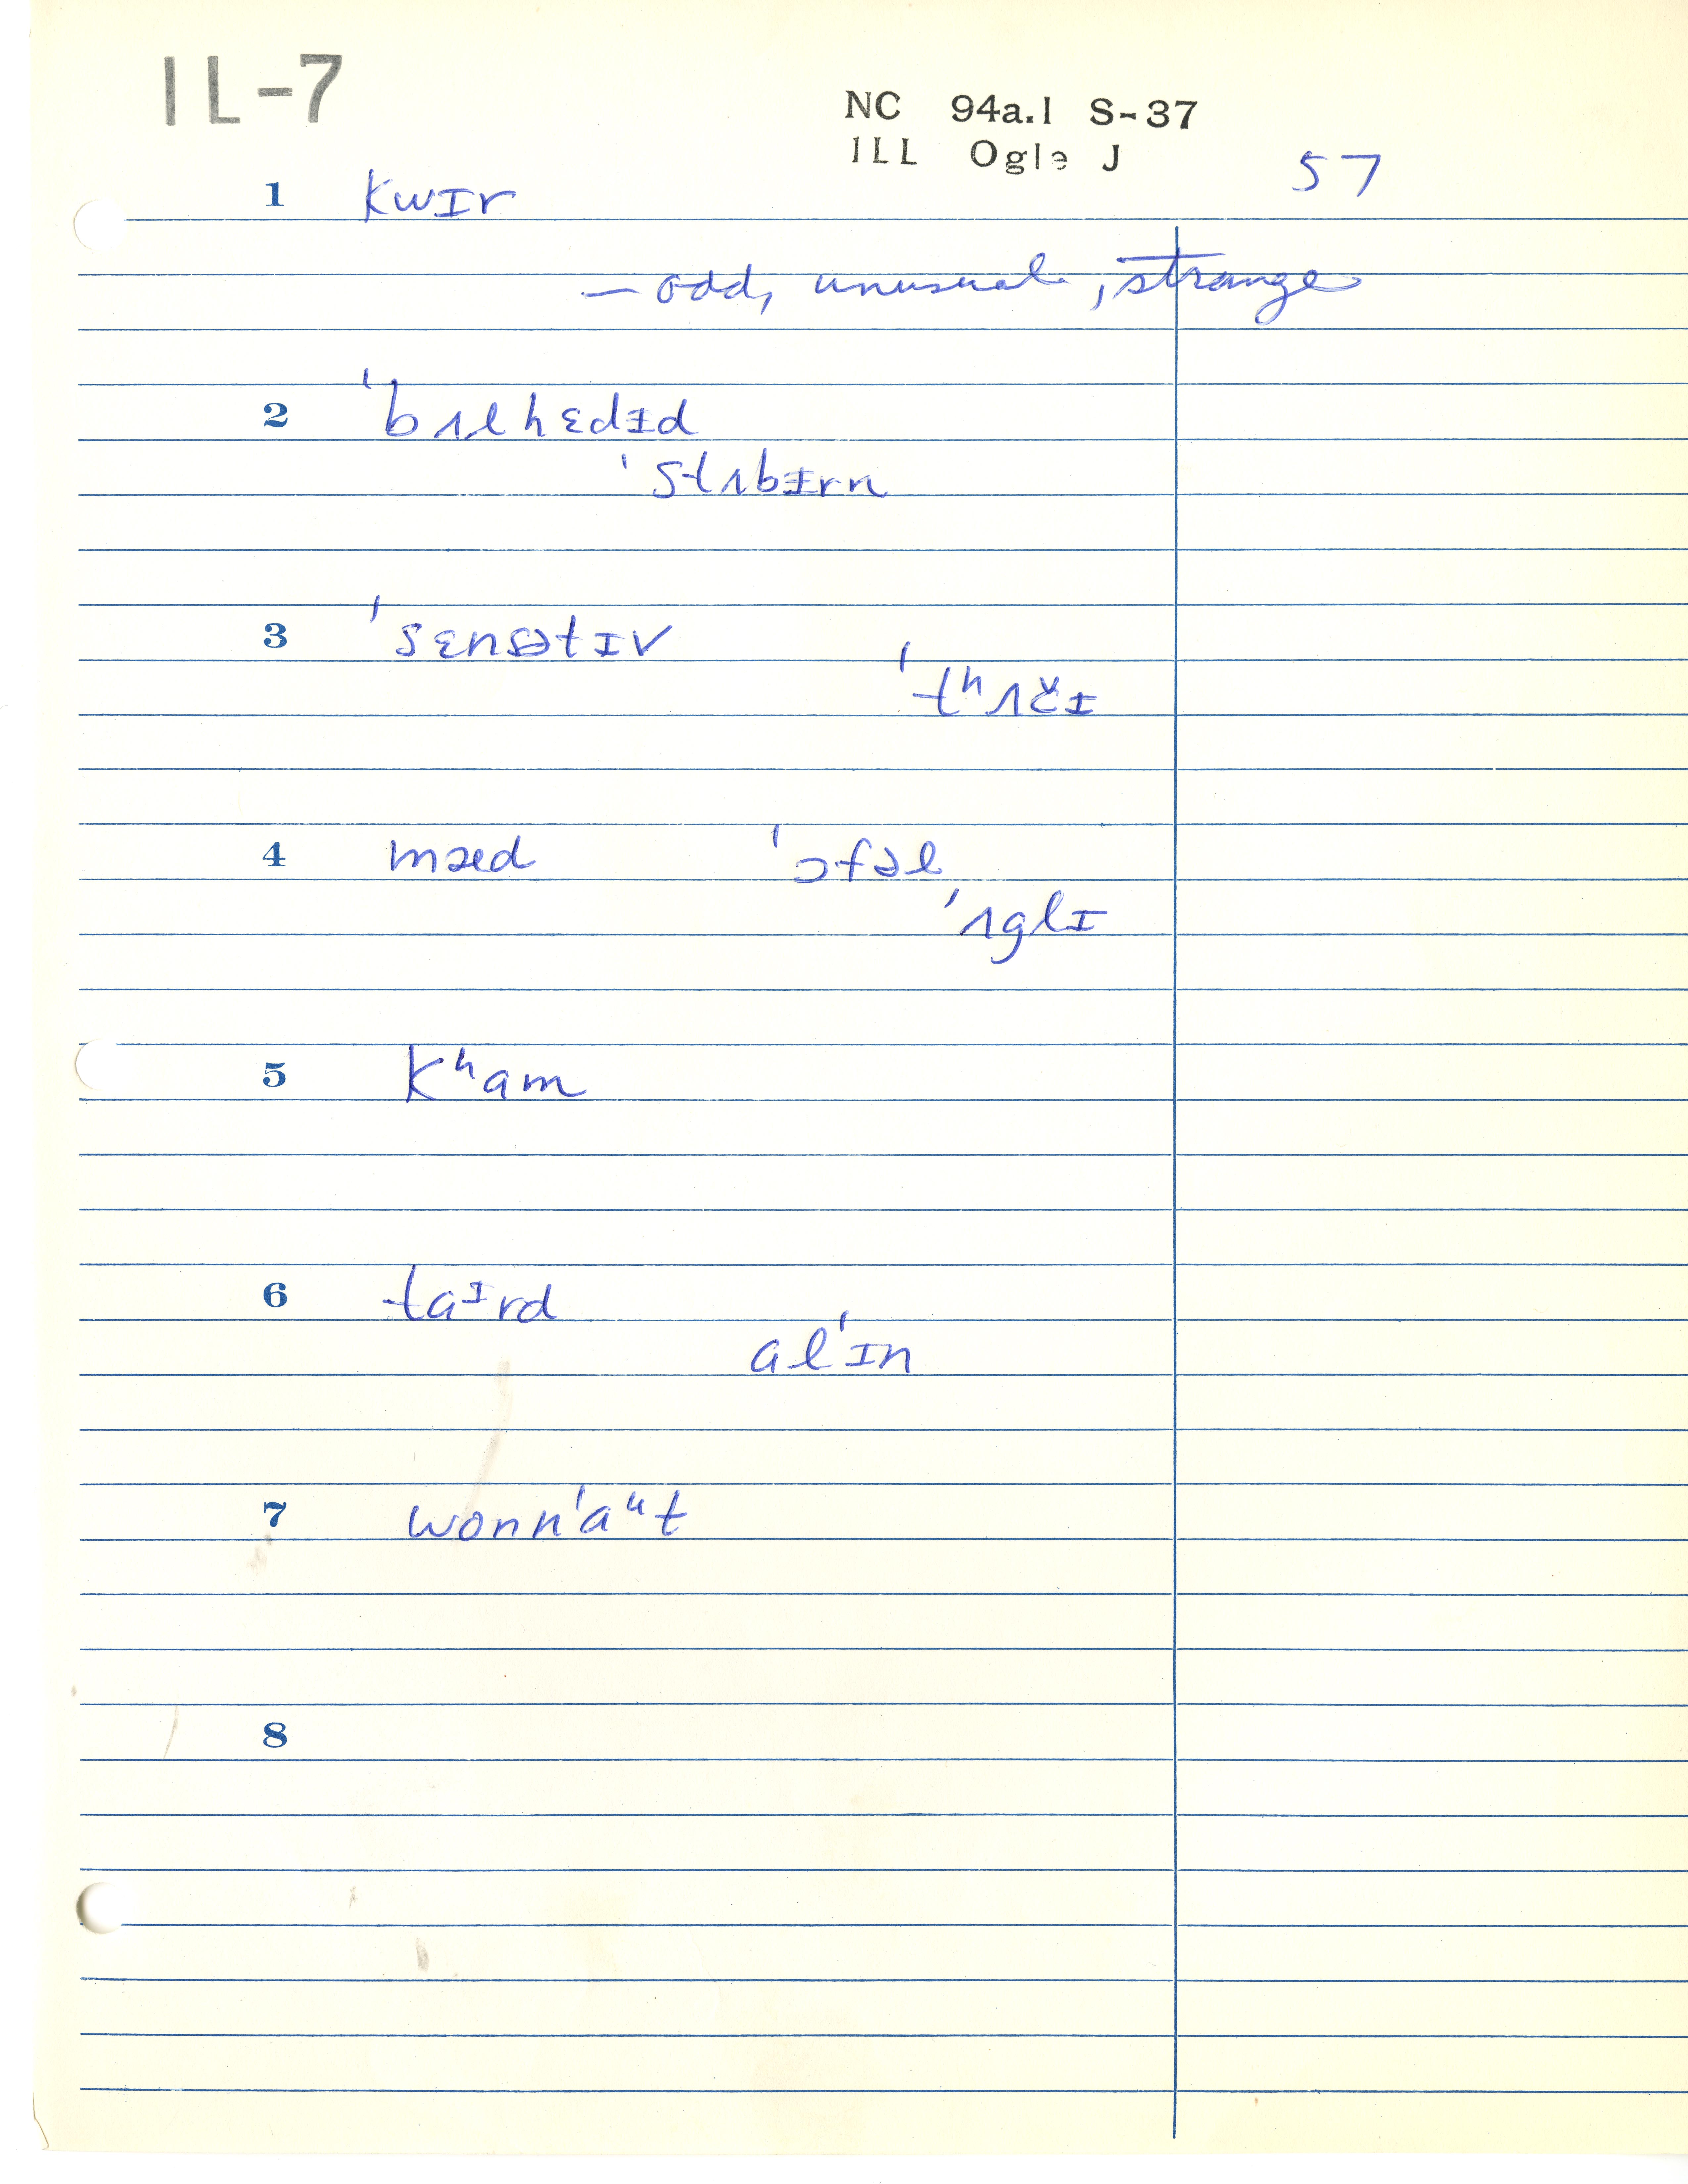 IL-7
NC 94a.1 S-37
ILL Ogle J
57
1 kwɪr
— odd, unusual, strange
2 ˈbʌlhɛdɪd
ˈstʌbɪrn
3 ˈsɛnsətɪv
ˈtʰʌčɪ
4 mæd ˈɔfəl
ˈʌglɪ
5 kʰam
6 taᶦrd
alˈɪn
7 wornˈaᵘt
8